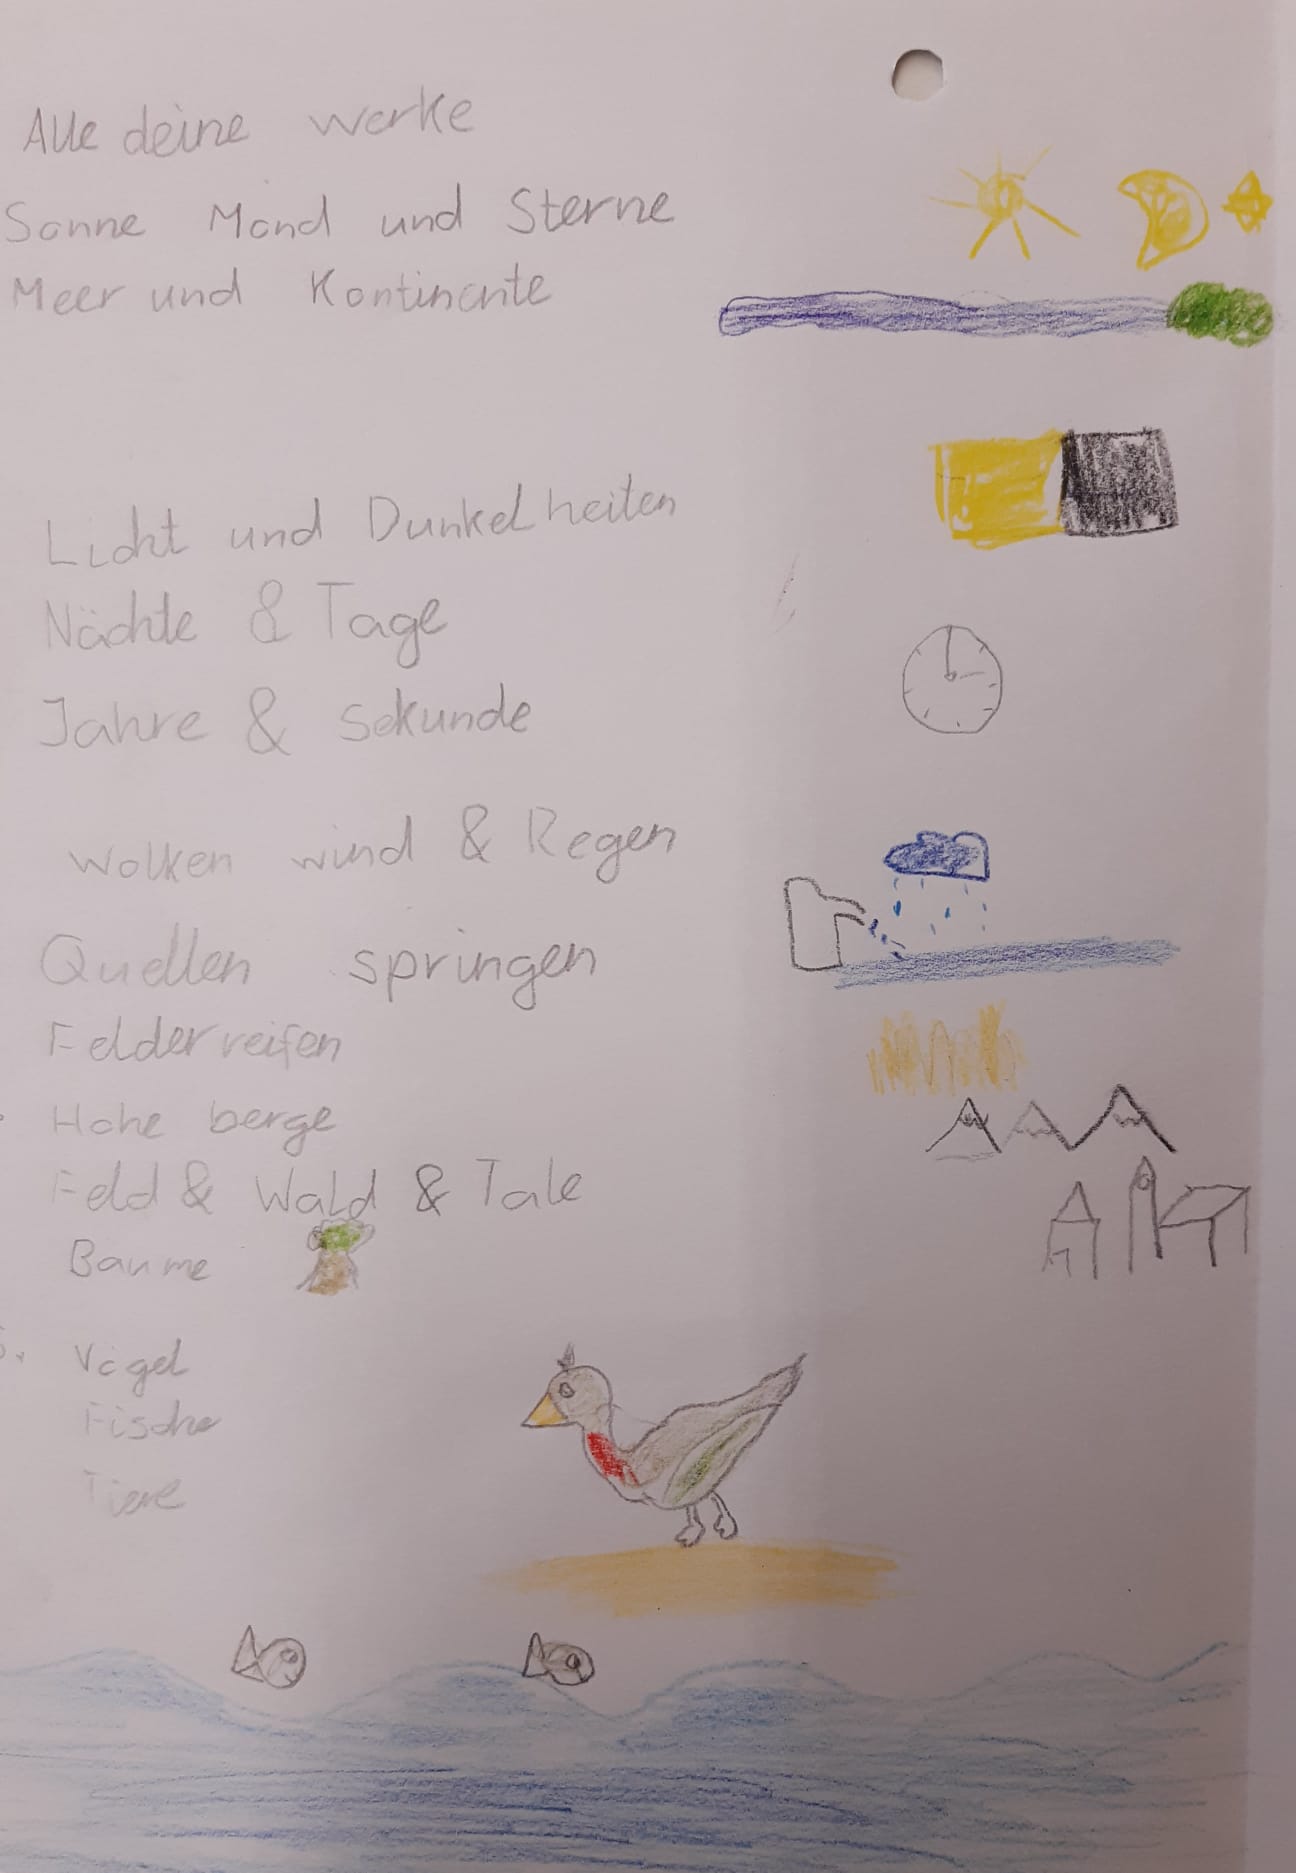 Alle deine werke
Sonne Mond und Sterne
Meer und Kontinente
Licht und Dunkelheiten
Nächte & Tage
Jahre & Sekunde
Wolken wind & Regen
Quellen springen
Felder reifen
Hohe berge
Feld & Wald & Tale
Baume
Vögel
Fische
Tiere